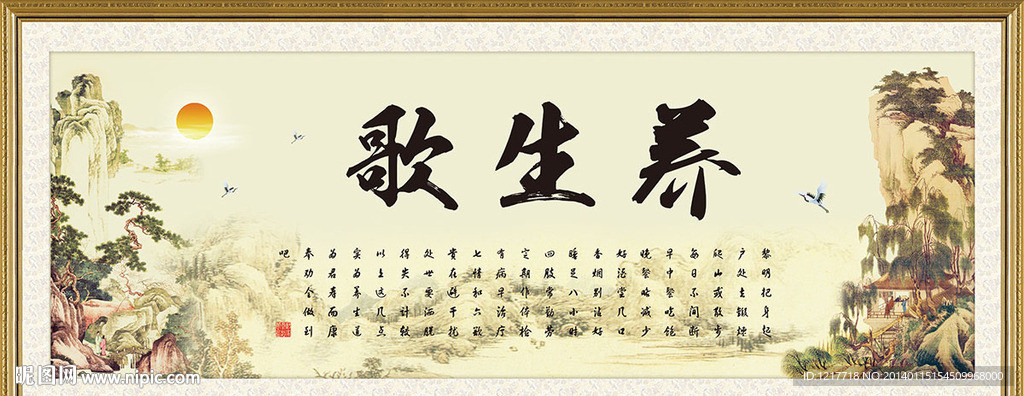 养生歌
黎明把身起
户外去锻炼
爬山或散步
每日不间断
早中餐吃饱
晚餐略减少
好酒尝几口
香烟别沾好
睡足八小时
四肢常勤劳
定期作体检
有病早治疗
七情和六欲
贵在避干扰
处世要洒脱
得失不计较
以上这几点
实为养生道
为君寿而康
奉劝全做到
吧
昵图网 www.nipic.com
ID:1217718 NO:20140115154509968000